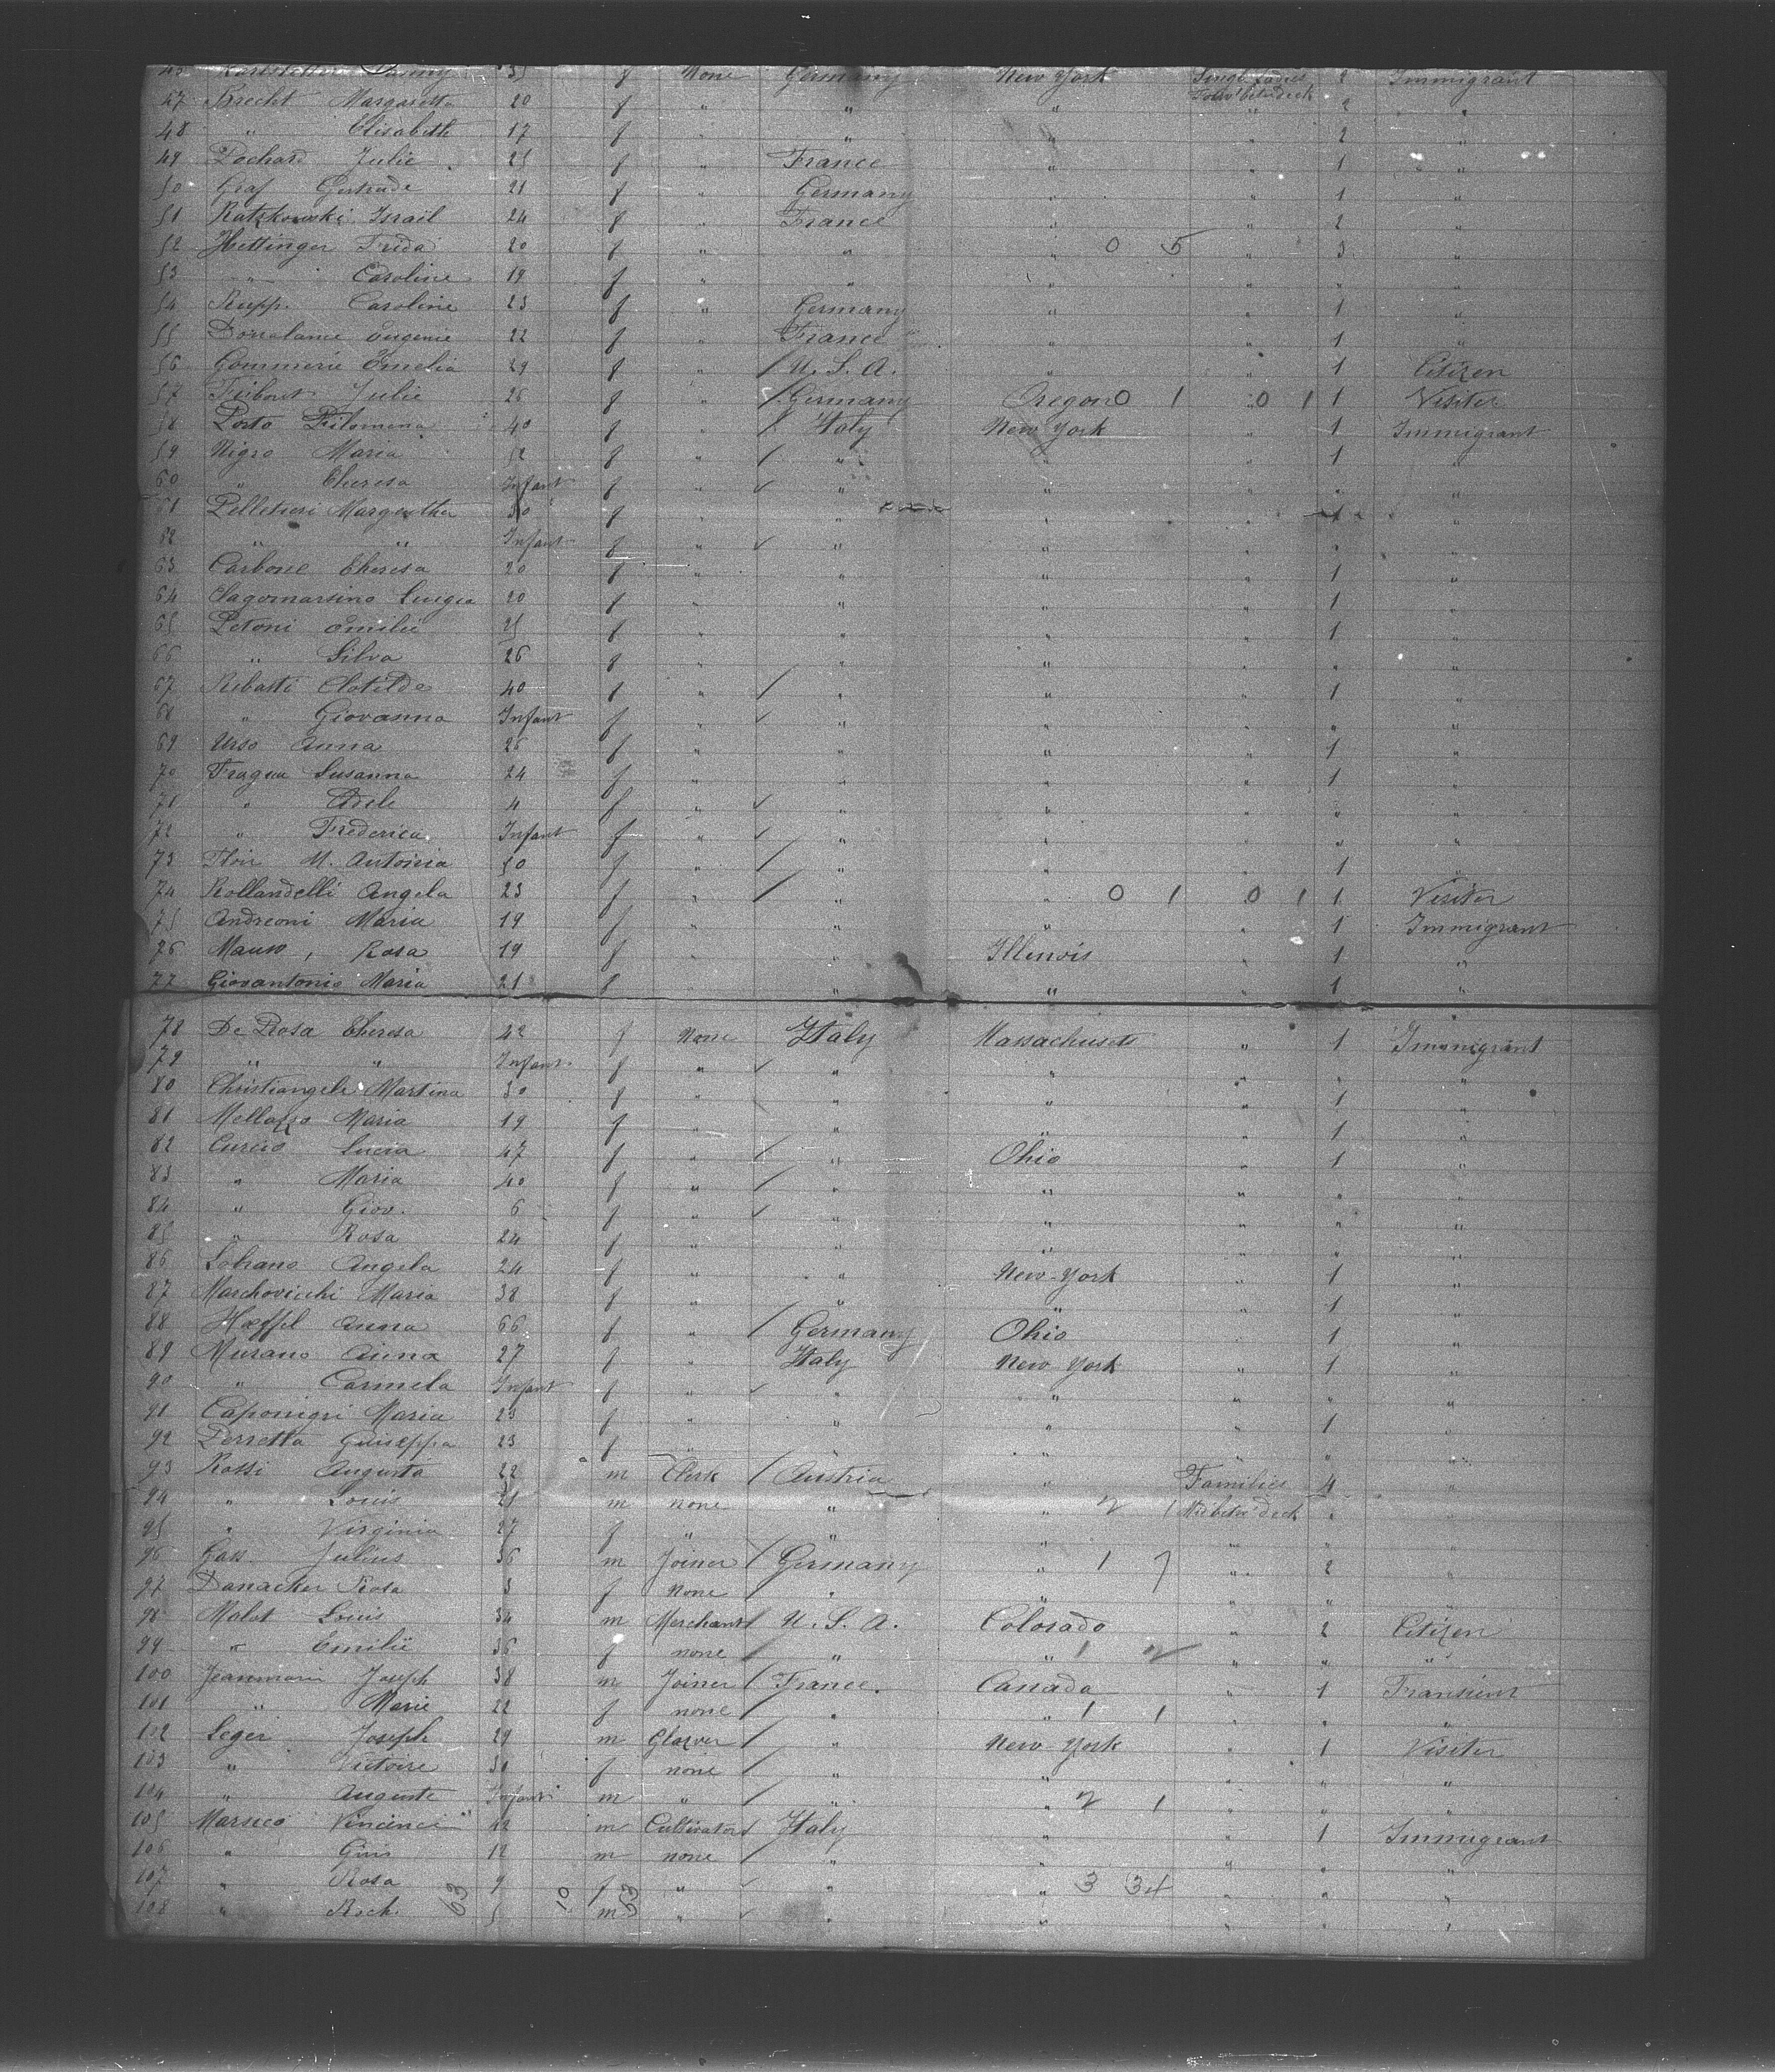 None Germany New York Single Ladies 2 Immigrant
47 Brecht Margaretta 20 f " " " Forw' betw deck 2 "
48 " Elisabeth 17 f " " " " 2 "
49 Pochard Julie 25 f " France " " 1 "
50 Graf Gertrude 21 f " Germany " " 1 "
51 Ratzkowski Israil 24 f " France " " 2 "
52 Hettinger Frida 20 f " " " 0 5 " 3 "
53 " Caroline 19 f " " " " " "
54 Rupp. Caroline 23 f " Germany " " 1 "
55 Eugenie 22 f " France " " 1 "
56 Gommerie Emelia 29 f " / U. S. A. " " 1 Citizen
57 Julie 26 f " / Germany Oregon 0 1 " 0 1 1 Visiter
58 Porto Filomena 40 f " / Italy New York " 1 Immigrant
59 Nigro Maria 52 f " / " " " 1 "
60 " Theresa Infant f " ✓ " " " " "
61 Pelletieri Margeritha 30 f " " " " 1 "
62 " " Infant f " ✓ " " " " "
63 Carbone Theresa 20 f " " " " 1 "
64 Sagomarsino Luigia 20 f " " " " 1 "
65 Petoni Emilie 25 f " " " " 1 "
66 " Silva 26 f " " " " " "
67 Ribasti Clotilde 40 f " / " " " 1 "
68 " Giovanna Infant f " ✓ " " " " "
69 Urso Anna 26 f " " " " 1 "
70 Fragua Susanna 24 f " " " " 1 "
71 " Adele 4 f " ✓ " " " " "
72 " Frederica Infant f " ✓ " " " " "
73 M. Antonia 50 f " / " " " 1 "
74 Rollandelli Angela 23 f " / " " 0 1 0 1 1 Visiter
75 Andreoni Maria 19 f " " " " 1 Immigrant
76 Mauso, Rosa 19 f " " Illinois " 1 "
77 Giovantonio Maria 21 f " " " " 1 "
78 De Rosa Theresa 42 f None Italy Massachusets " 1 Immigrant
79 " " Infant f " ✓ " " " " "
80 Christiangeli Martina 30 f " " " " 1 "
81 Mellazzo Maria 19 f " " " " 1 "
82 Curcio Lucia 47 f " / " Ohio " 1 "
83 " Maria 40 f " / " " " " "
84 " Giov. 6 f " ✓ " " " " "
85 " Rosa 24 f " " " " " "
86 Sobrano Angela 24 f " " New-York " 1 "
87 Marchovicchi Maria 38 f " " " " 1 "
88 Haeffel Anna 66 f " / Germany Ohio " 1 "
89 Murano Anna 27 f " Italy New York " 1 "
90 " Carmela Infant f " ✓ " " " " "
91 Caponigri Maria 23 f " " " " 1 "
92 Perretta Guiseppa 23 f " " " " " "
93 Rossi Augusto 22 m Clerk / Austria " Families 4 "
94 " Louis 21 m none " " 2 1 Mid betw' deck " "
95 " Virginia 27 f " " " " " "
96 Gass Julius 36 m Joiner / Germany " 1 7 " 2 "
97 Danacher Rosa 3 f none / " " " " "
98 Molot Louis 34 m Merchant / U. S. A. Colorado " 2 Citizen
99 " Emilie 36 f none / " " 1 2 " " "
100 Jeanmarie Joseph 38 m Joiner / France. Canada " 1 Transient
101 " Marie 22 f none / " " 1 1 " " "
102 Leger Joseph 29 m Glazver / " New-York " 1 Visiter
103 " Victoire 30 f none / " " " " "
104 " Auguste Infant m " / " " 2 1 " " "
105 Marsico Vincenci 42 m Cultivator / Italy " " 1 Immigrant
106 " Gius 12 m none / " " " " "
107 " Rosa 9 f " ✓ " " 3 34 " " "
108 " Roch. 63 5 10 m 53 " ✓ " " " " "